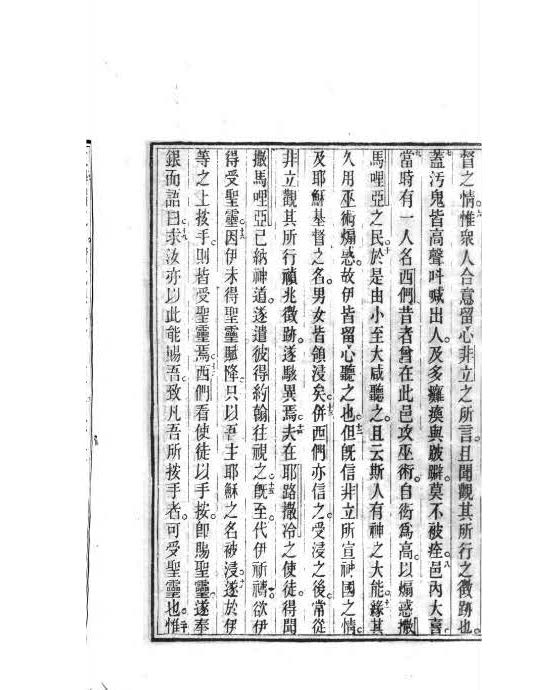 督之情。惟衆人合意留心非立之所言。且聞觀其所行之徵跡也。
蓋污鬼皆高聲呌喊出人。及多癱瘓與跛腳。莫不被痊。邑內大喜。
當時有一人名西們昔者曾在此邑攻巫術。自衒爲高。以煽惑撒
馬哩亞之民。於是由小至大咸聽之。且云斯人有神之大能。緣其
久用巫術煽惑。故伊皆留心聽之也。但旣信非立所宣神國之情。
及耶穌基督之名。男女皆領浸矣。併西們亦信之。受浸之後。常從
非立觀其所行禎兆徵跡。遂駭異焉。夫在耶路撒冷之使徒。得聞
撒馬哩亞已納神道。遂遣彼得約翰往視之。旣至。代伊祈禱。欲伊
得受聖靈。因伊未得聖靈降。只以吾主耶穌之名被浸。遂於伊
等之上按手。則皆受聖靈焉。西們看使徒以手按。卽賜聖靈。遂奉
銀而語曰。求汝亦以此能賜吾。致凡吾所按手者。可受聖靈也。惟